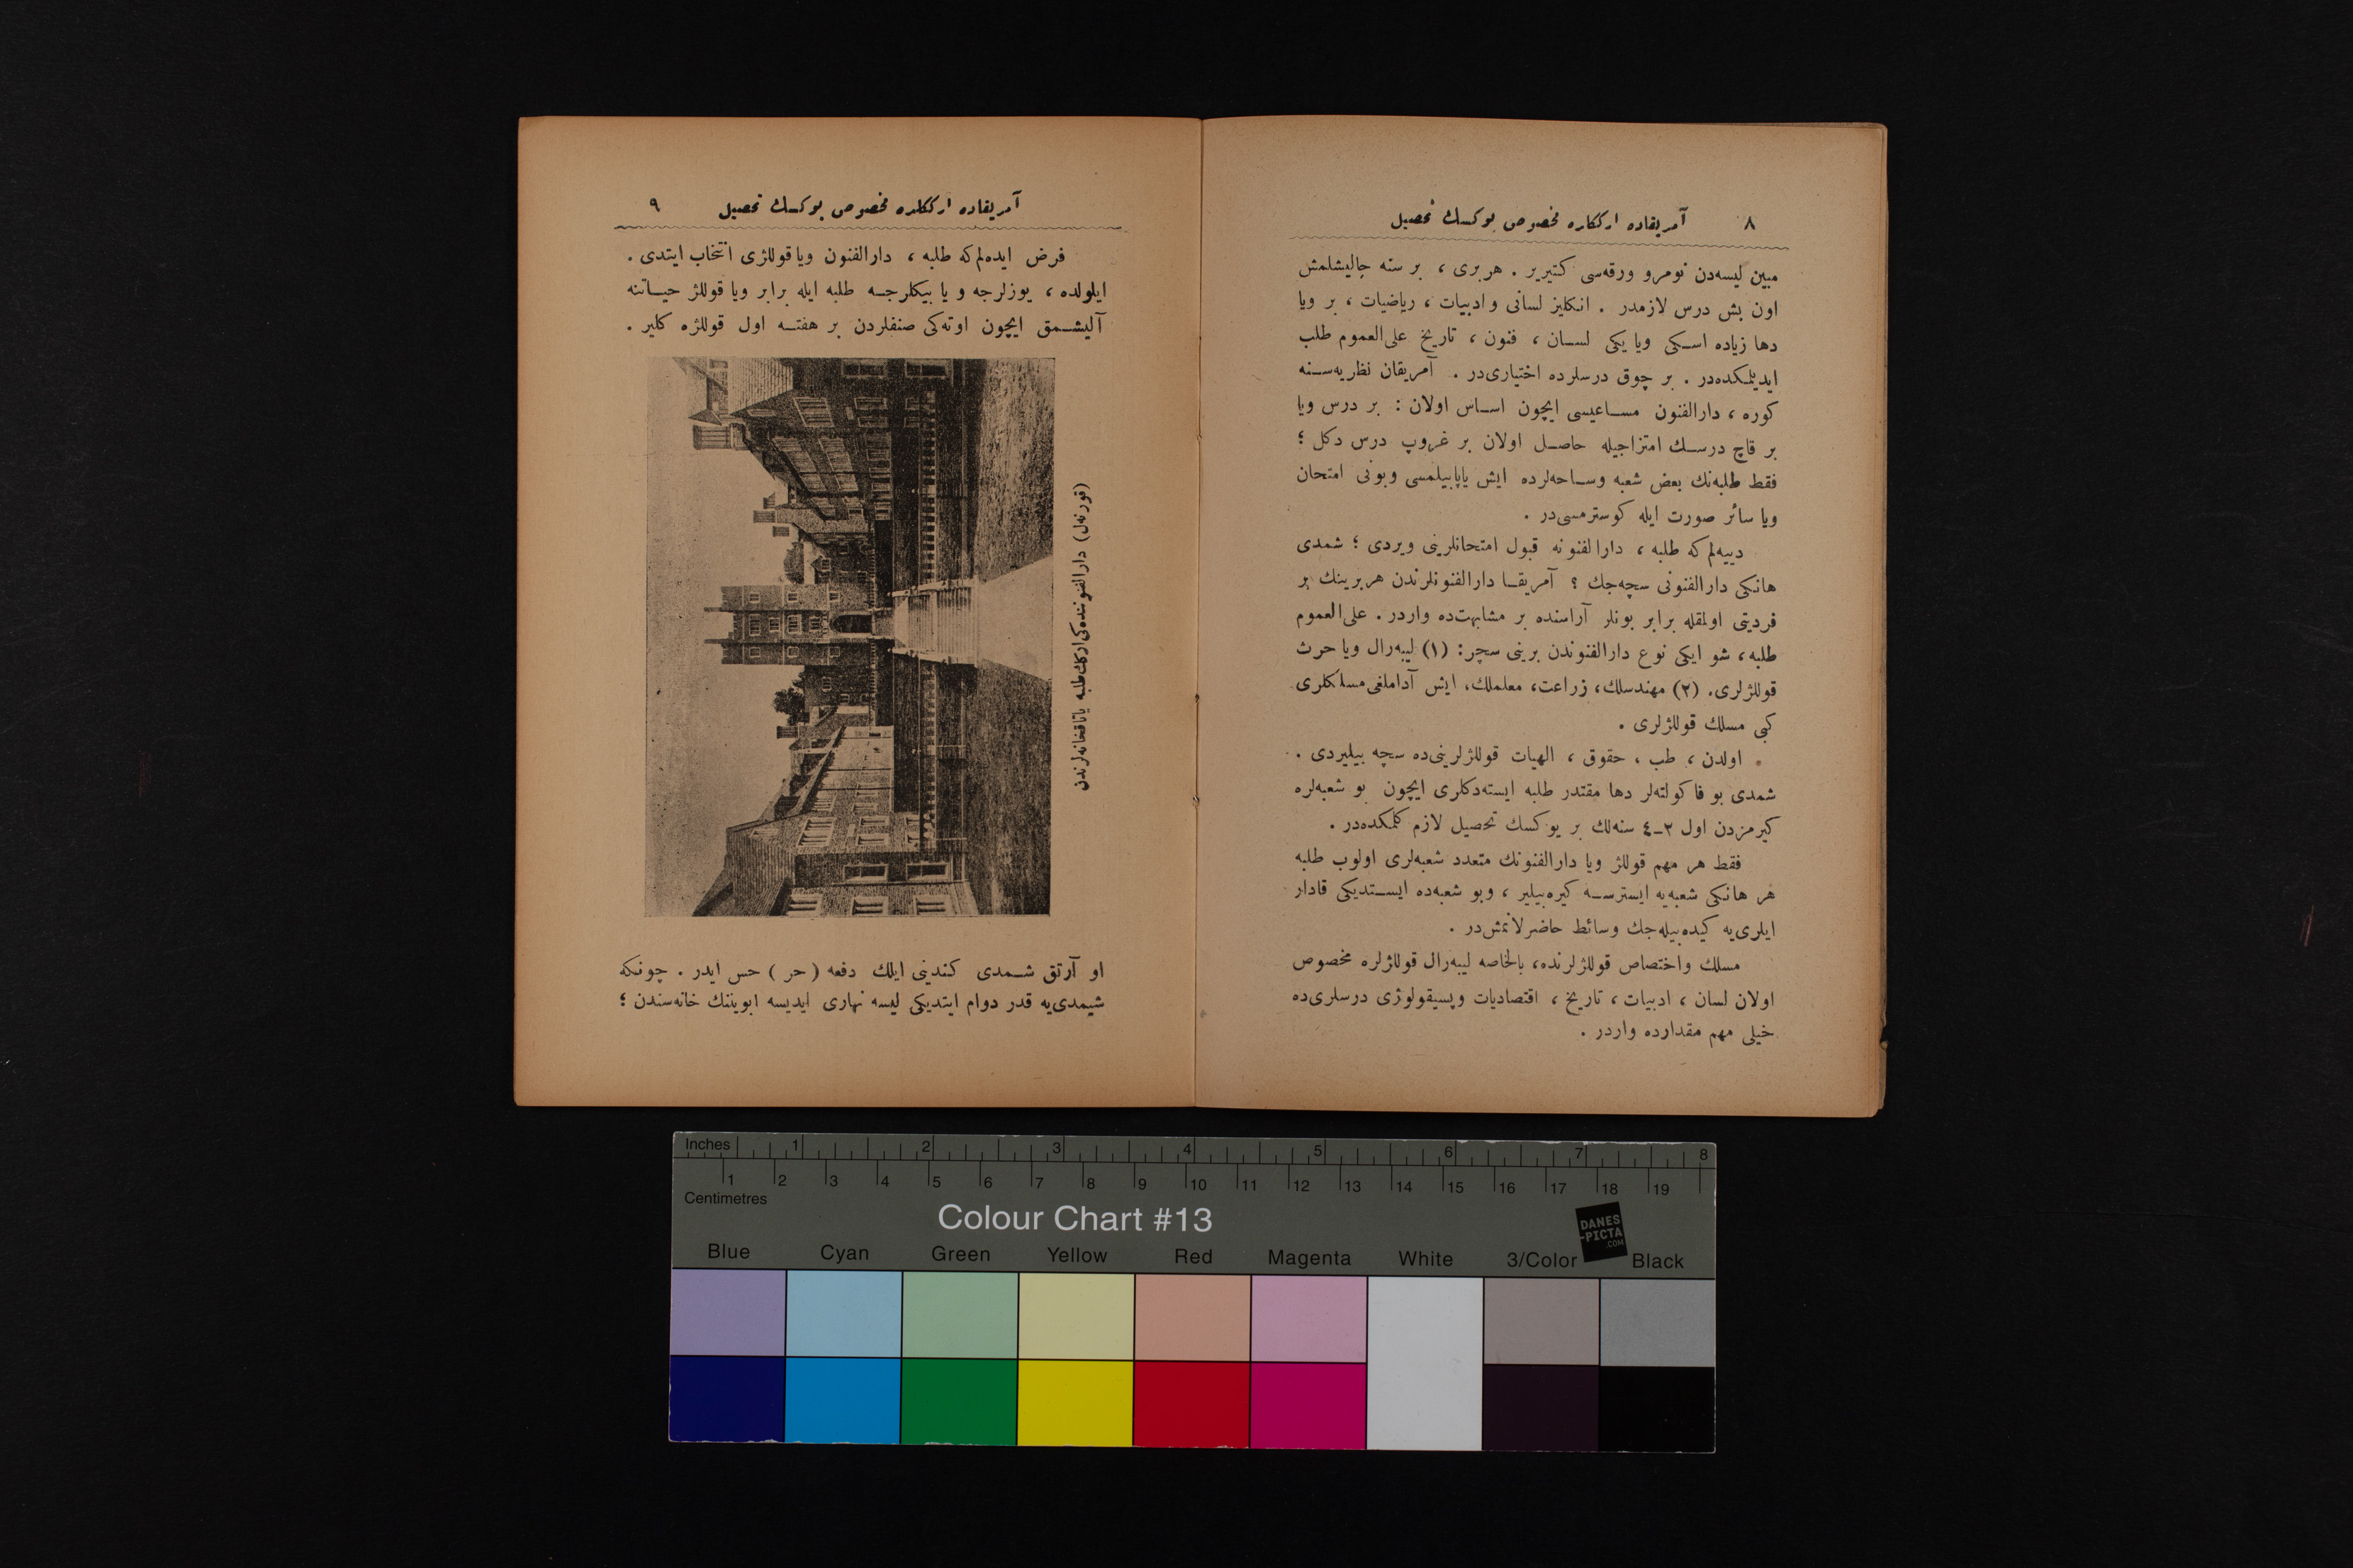 ٨ آمریقاده ارککلره مخصوص یوکسك تحصیل
مبین لیسه‌دن نومرو ورقه‌سی کتیریر . هربری ، بر سنه چالیشلمش
اون بش درس لازمدر . انکلیز لسانی وادبیات ، ریاضیات ، بر ویا
دها زیاده اسکی ویا یکی لسان ، فنون ، تاریخ علی‌العموم طلب
ایدیلمکده‌در . بر چوق درسلرده اختیاری‌در . آمریقان نظریه‌سنه
کوره ، دارالفنون مساعیسی ایچون اساس اولان : بر درس ویا
بر قاچ درسك امتزاجیله حاصل اولان بر غروپ درس دکل ؛
فقط طلبه‌نك بعض شعبه وساحه‌لرده ایش یاپابیلمسی وبونی امتحان
ویا سائر صورت ایله کوسترمسی‌در .
دییه‌لم که طلبه ، دارالفنونه قبول امتحانلرینی ویردی ؛ شمدی
هانکی دارالفنونی سچه‌جك ؟ آمریقا دارالفنونلرندن هربرینك بر
فردیتی اولمقله برابر بونلر آراسنده بر مشابهت‌ده واردر . علی‌العموم
طلبه ، شو ایکی نوع دارالفنوندن برینی سچر : (١) لیبه‌رال ویا حرث
قوللژلری . (٢) مهندسلك ، زراعت ، معلملك ، ایش آداملغی مسلکلری
کبی مسلك قوللژلری .
اولدن ، طب ، حقوق ، الهیات قوللژلرینی‌ده سچه بیلیردی .
شمدی بو فاکولته‌لر دها مقتدر طلبه ایسته‌دکلری ایچون بو شعبه‌لره
کیرمزدن اول ٢-٤ سنه‌لك بر یوکسك تحصیل لازم کلمکده‌در .
فقط هر مهم قوللژ ویا دارالفنونك متعدد شعبه‌لری اولوب طلبه
هر هانکی شعبه‌یه ایسترسه کیره‌بیلیر ، وبو شعبه‌ده ایستدیکی قادار
ایلری‌یه کیده‌بیله‌جك وسائط حاضرلانمش‌در .
مسلك واختصاص قوللژلرنده ، بالخاصه لیبه‌رال قوللژلره مخصوص
اولان لسان ، ادبیات ، تاریخ ، اقتصادیات وپسیقولوژی درسلری‌ده
خیلی مهم مقدارده واردر .
آمریقاده ارککلره مخصوص یوکسك تحصیل ٩
فرض ایده‌لم که طلبه ، دارالفنون ویا قوللژی انتخاب ایتدی .
ایلولده ، یوزلرجه و یا بیکلرجه طلبه ایله برابر ویا قوللژ حیاتنه
آلیشمق ایچون اوته‌کی صنفلردن بر هفته اول قوللژه کلیر .
(قورنه‌ل) دارالفنوننده‌کی ارکك طلبه یاتاقخانه‌لرندن
او آرتق شمدی کندینی ایلك دفعه ( حر ) حس ایدر . چونکه
شیمدی‌یه قدر دوام ایتدیکی لیسه نهاری ایدیسه ابویننك خانه‌سندن ؛
Inches 1 2 3 4 5 6 7 8
1 2 3 4 5 6 7 8 9 10 11 12 13 14 15 16 17 18 19
Centimetres
Colour Chart #13
DANES
-PICTA
.COM
Blue Cyan Green Yellow Red Magenta White 3/Color Black